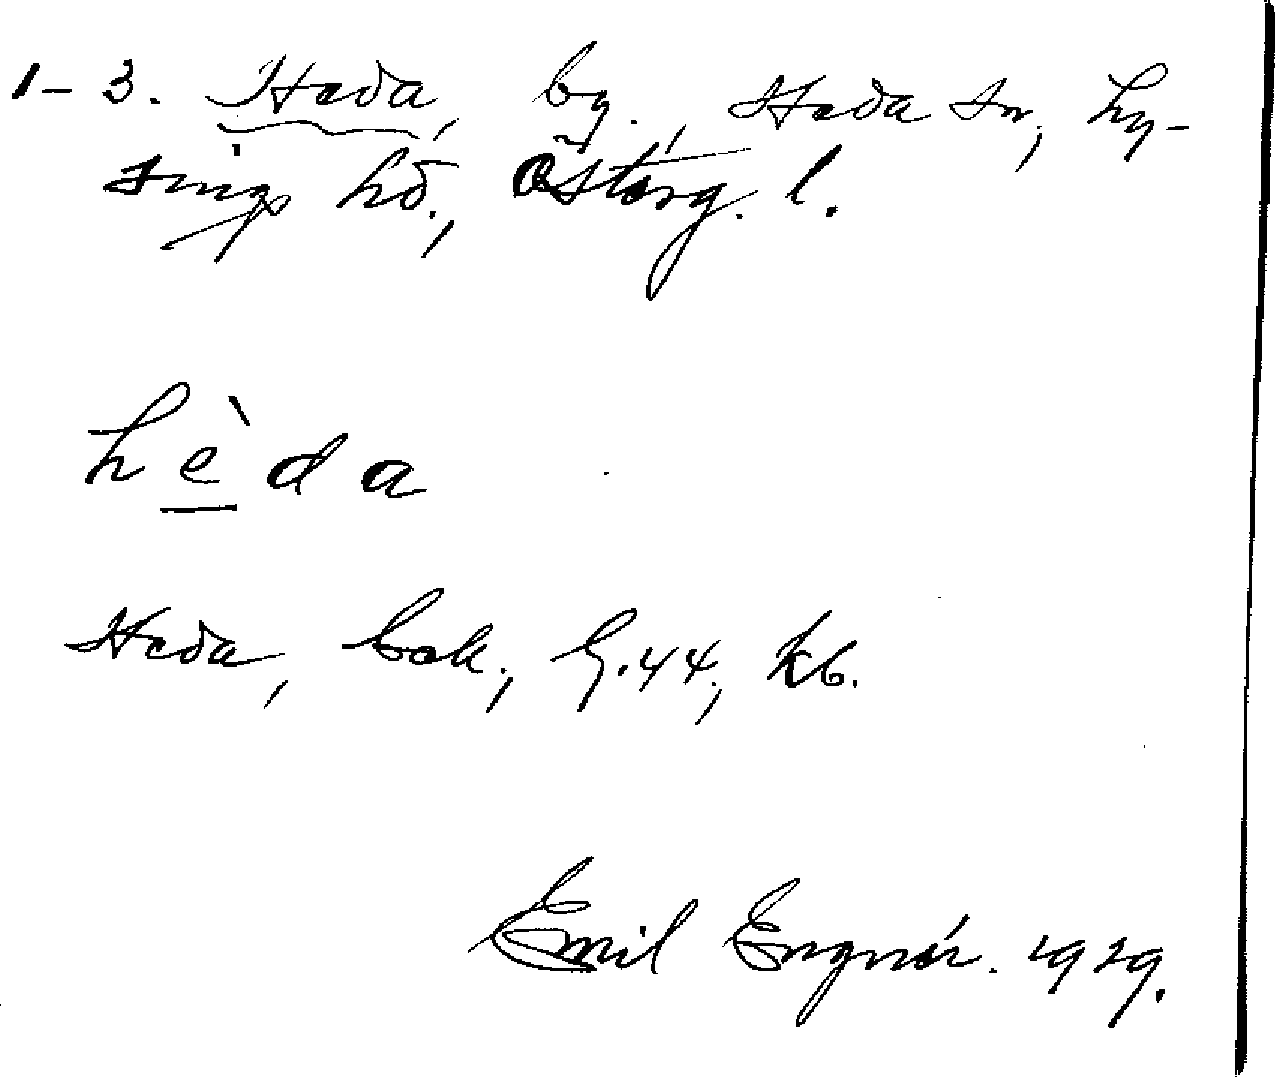 1-3. Heda, by., Heda sn, Ly-
sings hd., Österg. l.
hèda
Heda, bok., G.44., kb.
Emil Engnér. 1929.